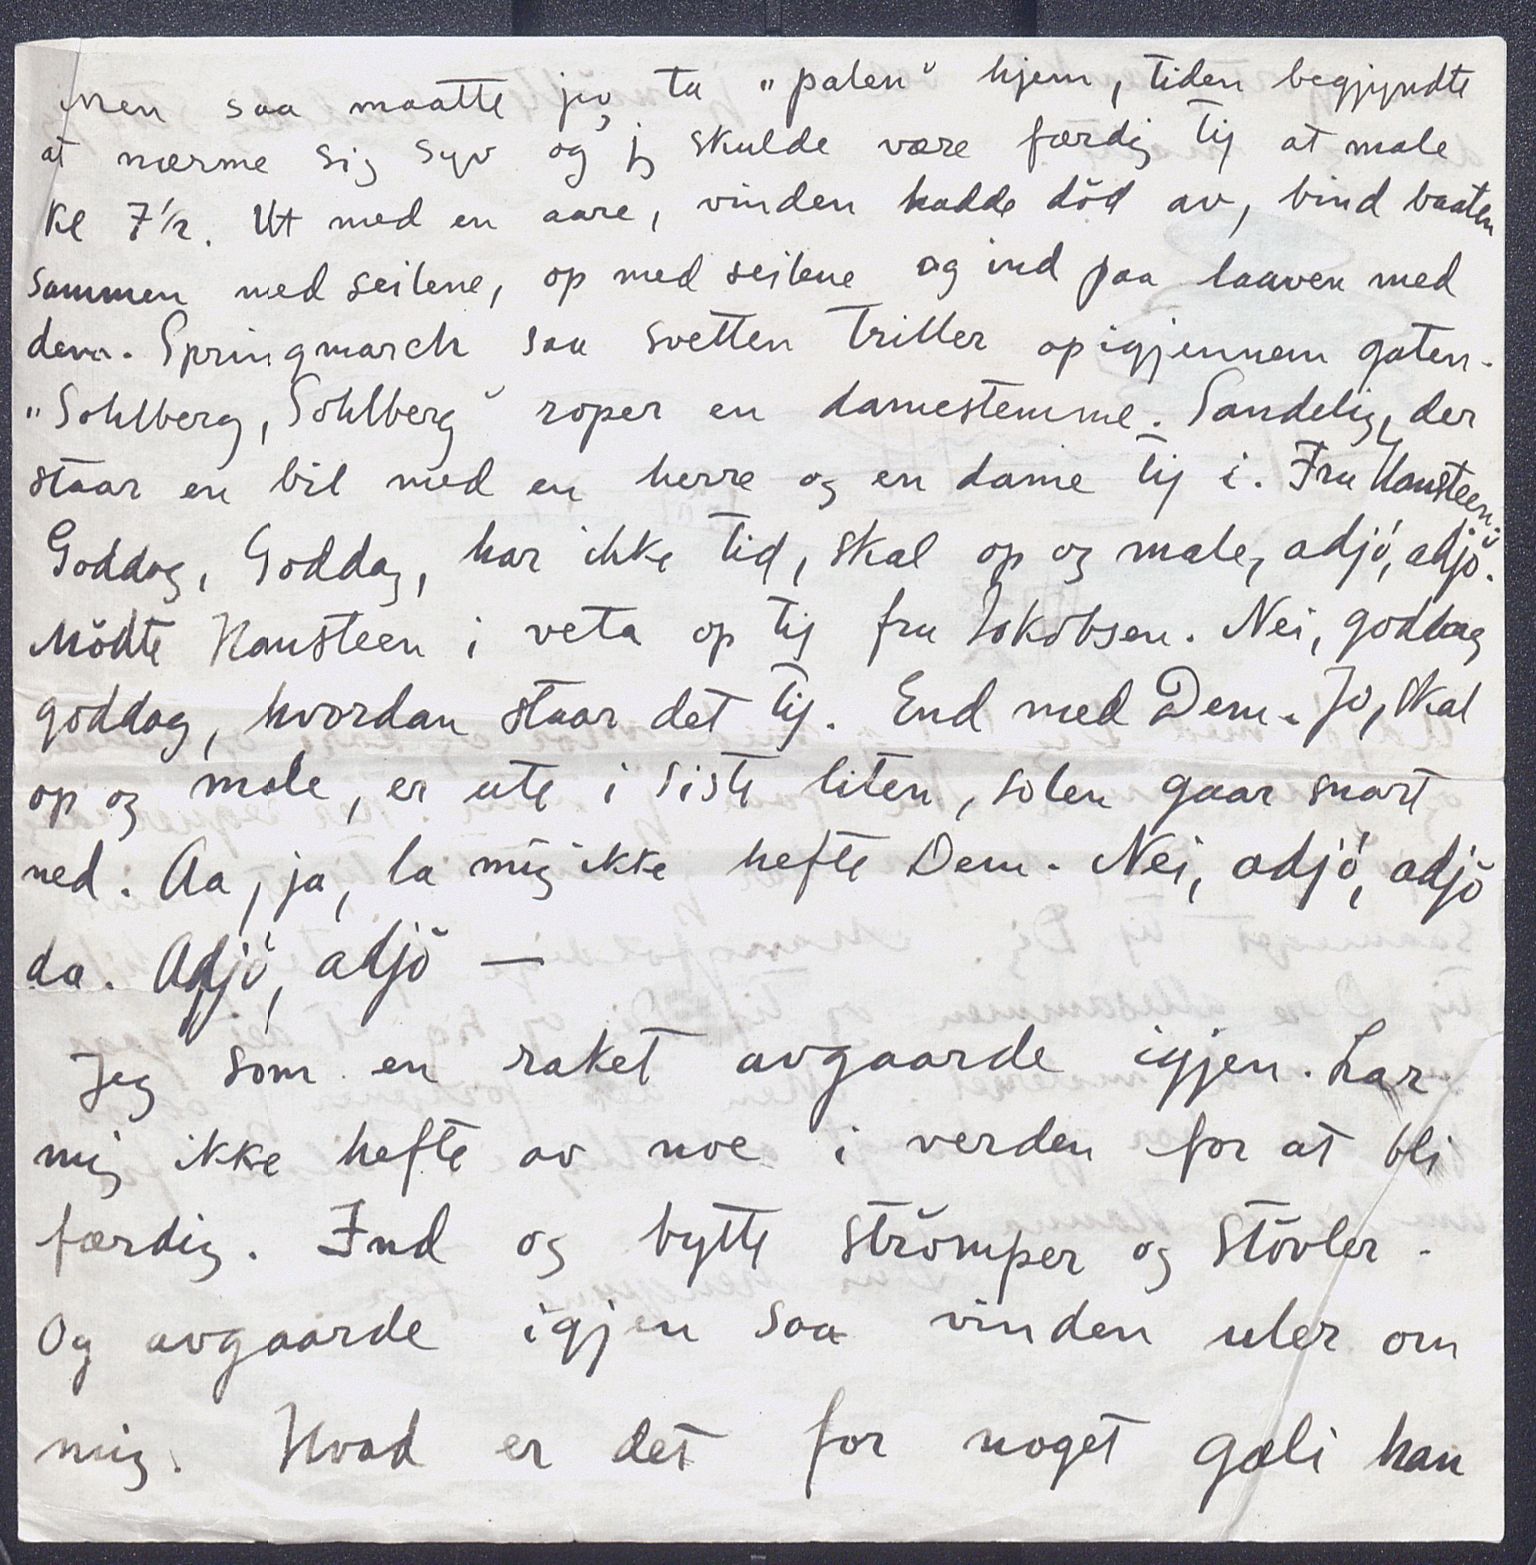 Men saa maatte jeg ta "palen" hjem, tiden begyndte
at nærme sig syv og jeg skulde være færdig til at male
Kl 7½. Ut med en aare, vinden hadde död av, bind baaten
sammen med seilene, op med seilene og ind paa laaven med
dem. Springmarch saa svetten triller op igjennem gaten.
"Sohlberg, Sohlberg" roper en damestemme. Sandelig, der
staar en bil med en herre og en dame til i. Fru Hansteen:
Goddag, Goddag, har ikke tid, skal op og male, adjö, adjö.
Mödte Hansteen i veta op til fru Jakobsen. Nei, goddag
goddag, hvordan staar det til. End med Dem. Jo, skal
op og male, er ute i siste liten, solen gaar snart
ned. Aa, ja, la mig ikke hefte Dem. Nei, adjö, adjö
da. Adjö, adjö —
Jeg som en raket avgaarde igjen. Lar
mig ikke hefte av noe i verden for at bli
færdig. Ind og bytte strömper og stövler.
Og avgaarde igjen saa vinden uler om
mig. Hvad er det for noget gæli han